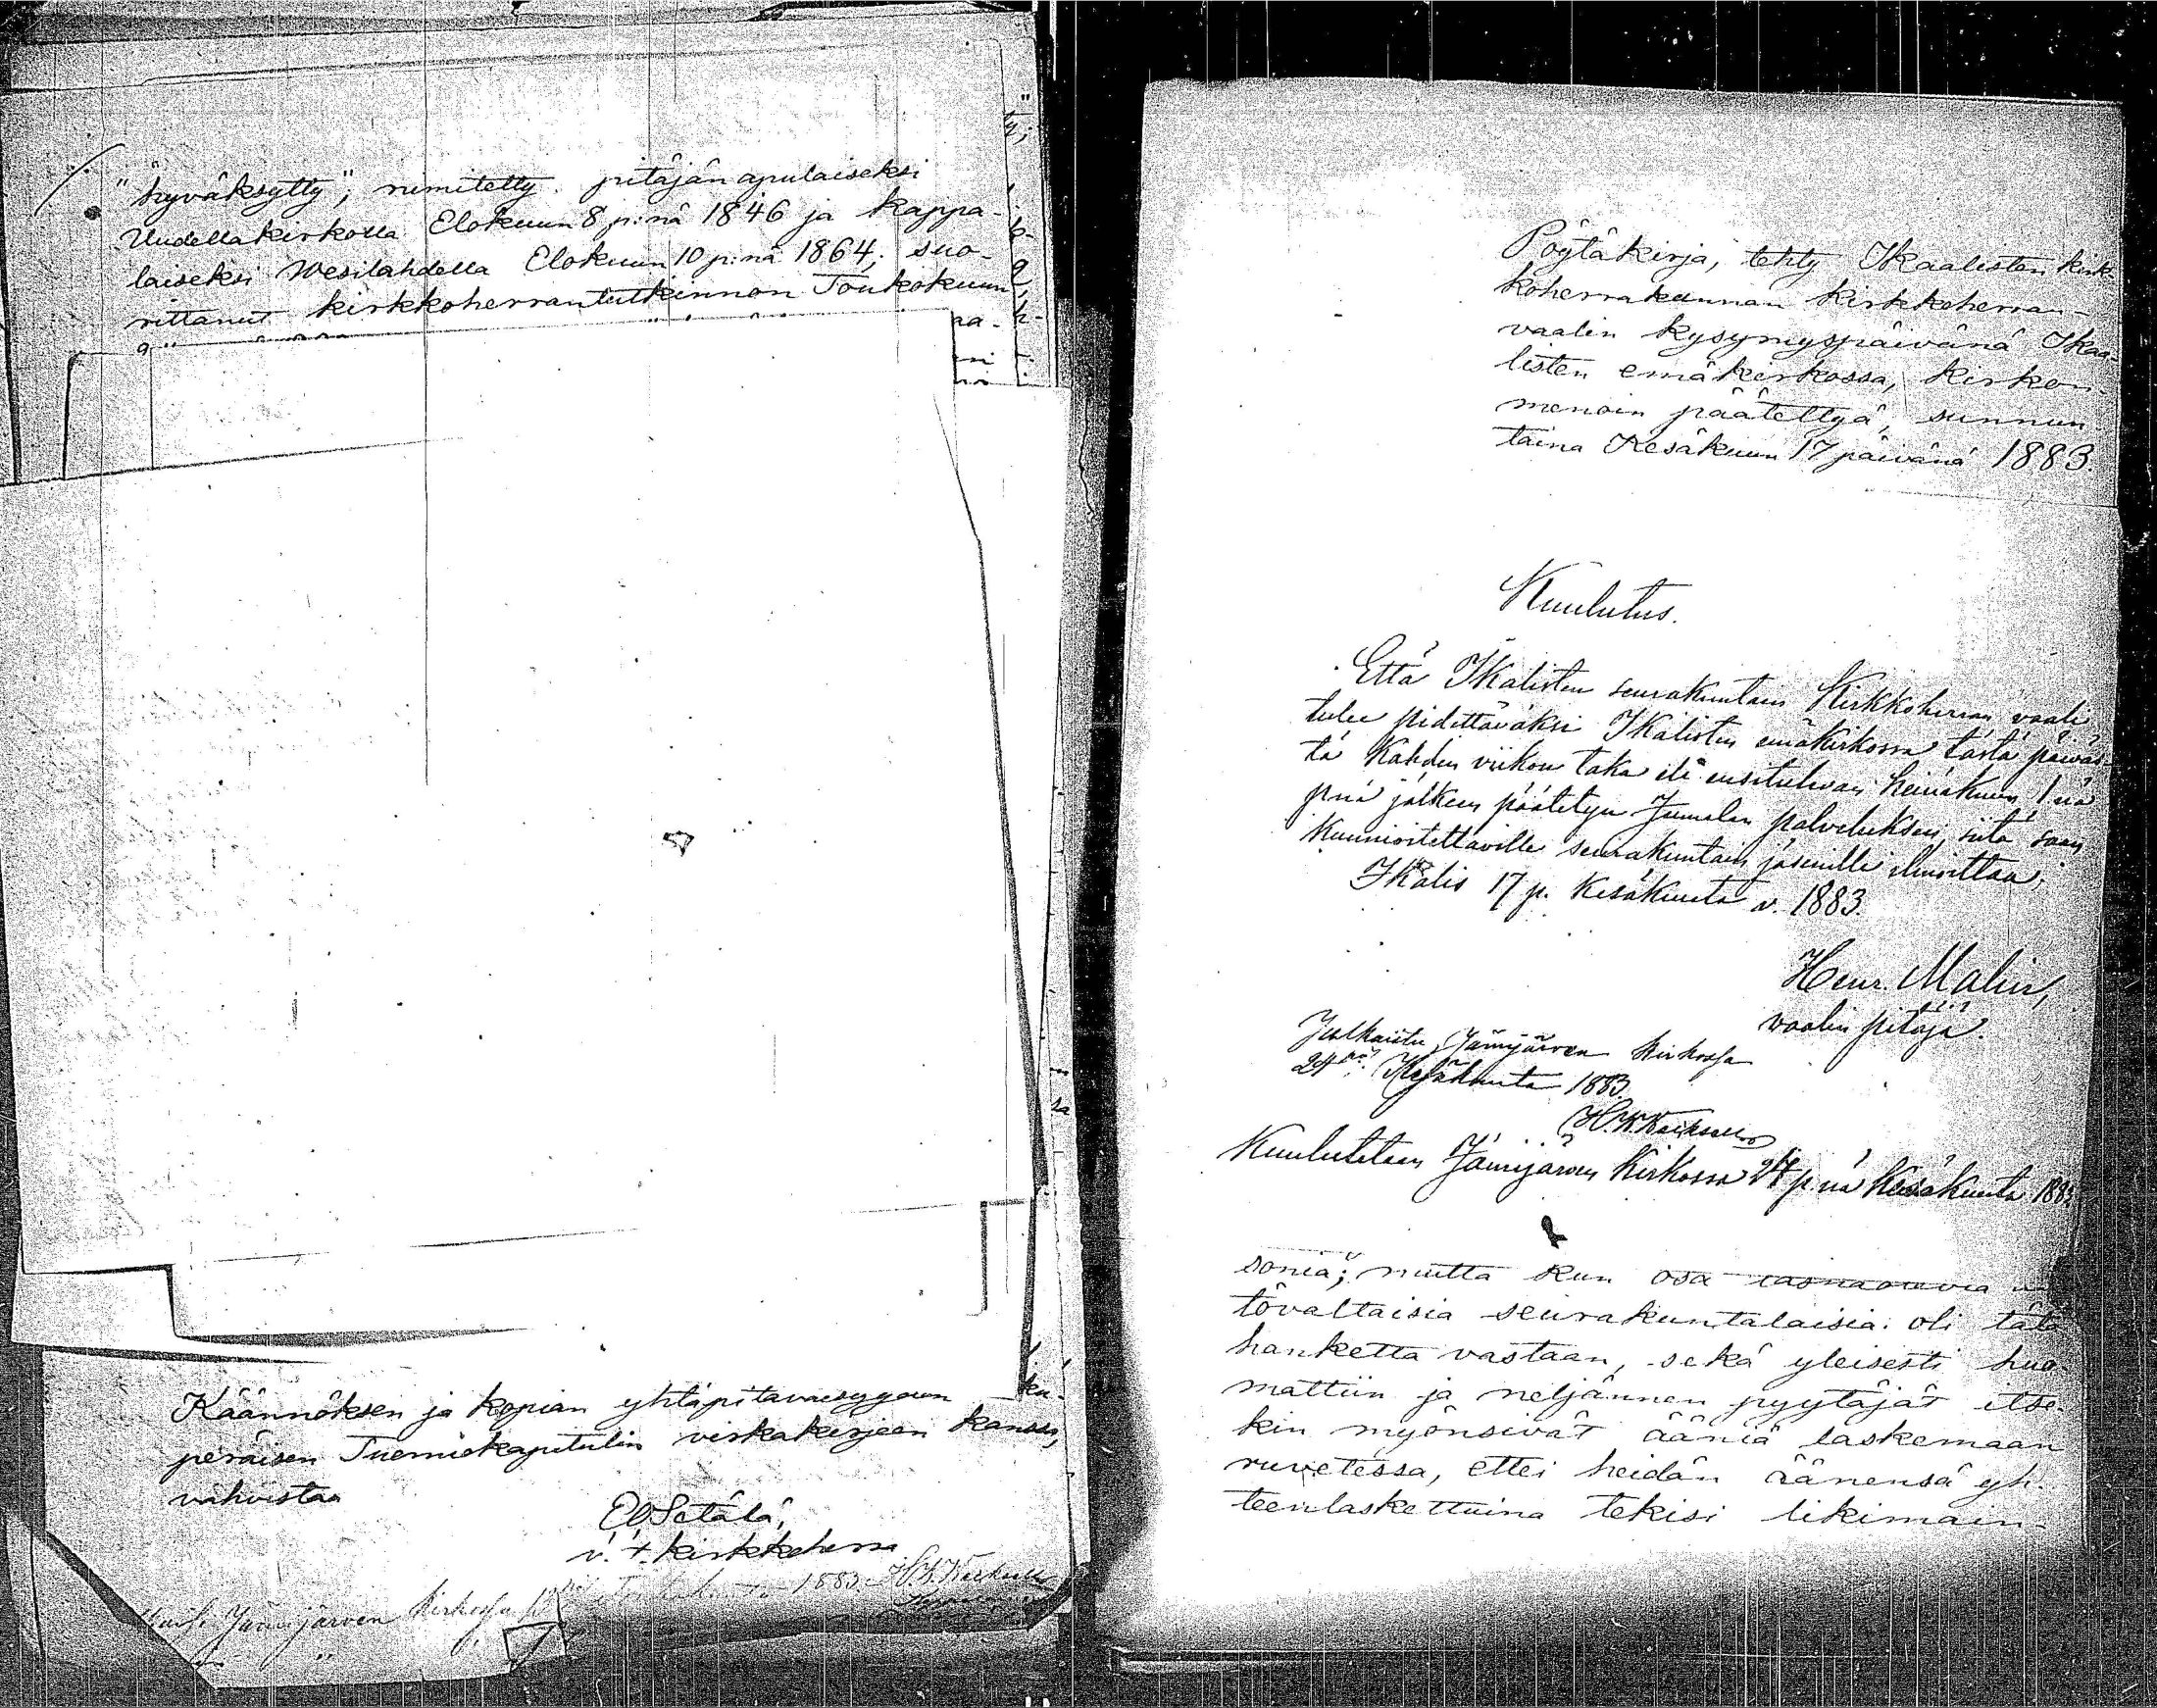 "hyväksytty", nimitetty pitäjänapulaiseksi
Uudellakirkolla Elokuun 8 p:nä 1846 ja kappa-
laiseksi Wesilahdella Elokuun 10 p:nä 1864; suo-
rittanut kirkkoherrantutkinnon Toukokuun
Käännöksen ja kopian yhtäpitäväisyyden
peräisen Tuomiokapitulin virkakirjeen kanssa,
vahvistaa
EOSetälä,
v. t. kirkkoherra
Jämijärven kirkossa 1883.
Pöytäkirja, tehty Ikaalisten kirk-
koherrakunnan kirkkoherran-
vaalin kysymyspäivänä Ikaa-
listen emäkirkossa, kirkon-
menoin päätettyä, sunnun-
taina Kesäkuun 17 päivänä 1883.
Kuulutus.
Että Ikalisten seurakuntain Kirkkoherran vaali
tulee pidettäväksi Ikalisten emäkirkossa tästä päiväs-
tä Kahden viikon taka eli ensitulevan heinäkuun 1:nä
p:nä jälkeen päätetyn Jumalan palveluksen, siitä saan
Kunnioitettaville seurakuntain jäsenille ilmoittaa;
Ikalis 17 p. Kesäkuuta v. 1883.
Henr. Malin,
vaalin pitäjä.
Julkaistu Jämijärven kirkossa
24 Kesäkuuta 1883.
Kuulutetaan Jämijärven Kirkossa 24 p:nä Kesäkuuta 1883
soniä; mutta kun osa
tövaltaisia seurakuntalaisia oli tätä
hanketta vastaan, sekä yleisesti huo-
mattiin ja neljännen pyytäjät itse-
kin myönsivät ääniä laskemaan
ruvetessa, ettei heidän äänensä yh-
teenlaskettuina tekisi likimain-